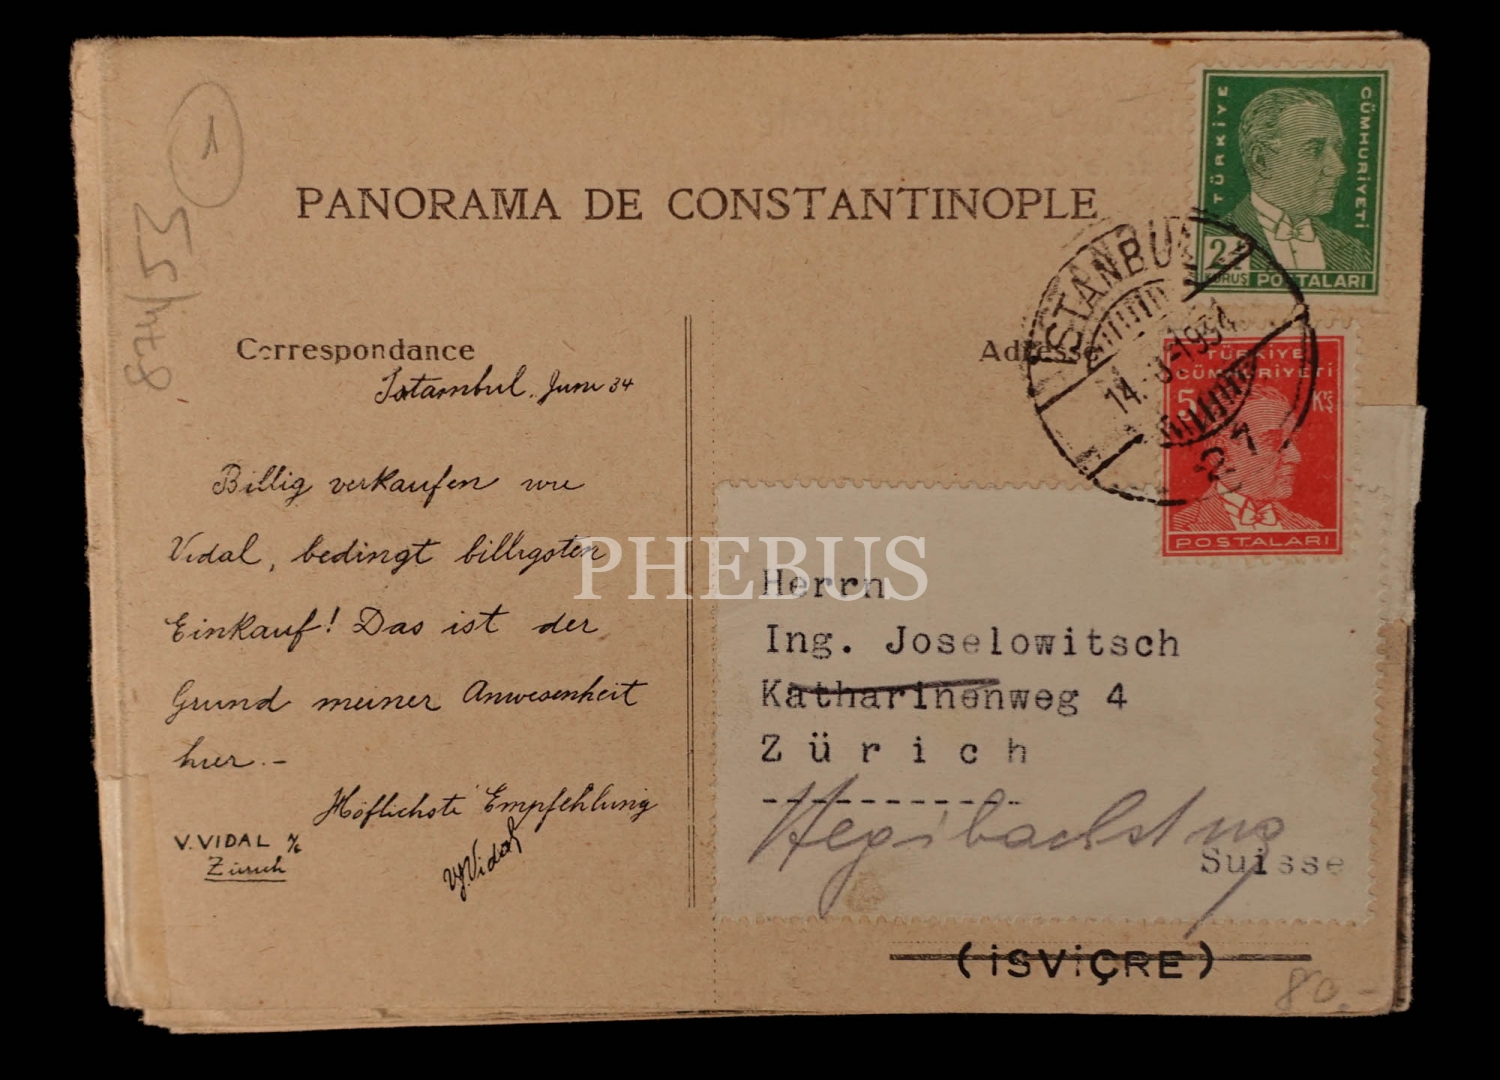 1
874/53
PANORAMA DE CONSTANTINOPLE
TÜRKİYE
CÜMHURİYETİ
2½
KURUŞ POSTALARI
İSTANBUL
14. 1934
21
TÜRKİYE
CÜMHURİYETİ
5 Krş
POSTALARI
Correspondance
Adresse
Istambul, Juni 34
Billig verkaufen wie
Vidal, bedingt billigsten
Einkauf! Das ist der
Grund meiner Anwesenheit
hier.-
Höflichste Empfehlung
V. VIDAL
Zürich
Vidal
PHEBUS
Herrn
Ing. Joselowitsch
Katharinenweg 4
Zürich
Suisse
(İSVİÇRE)
80.-